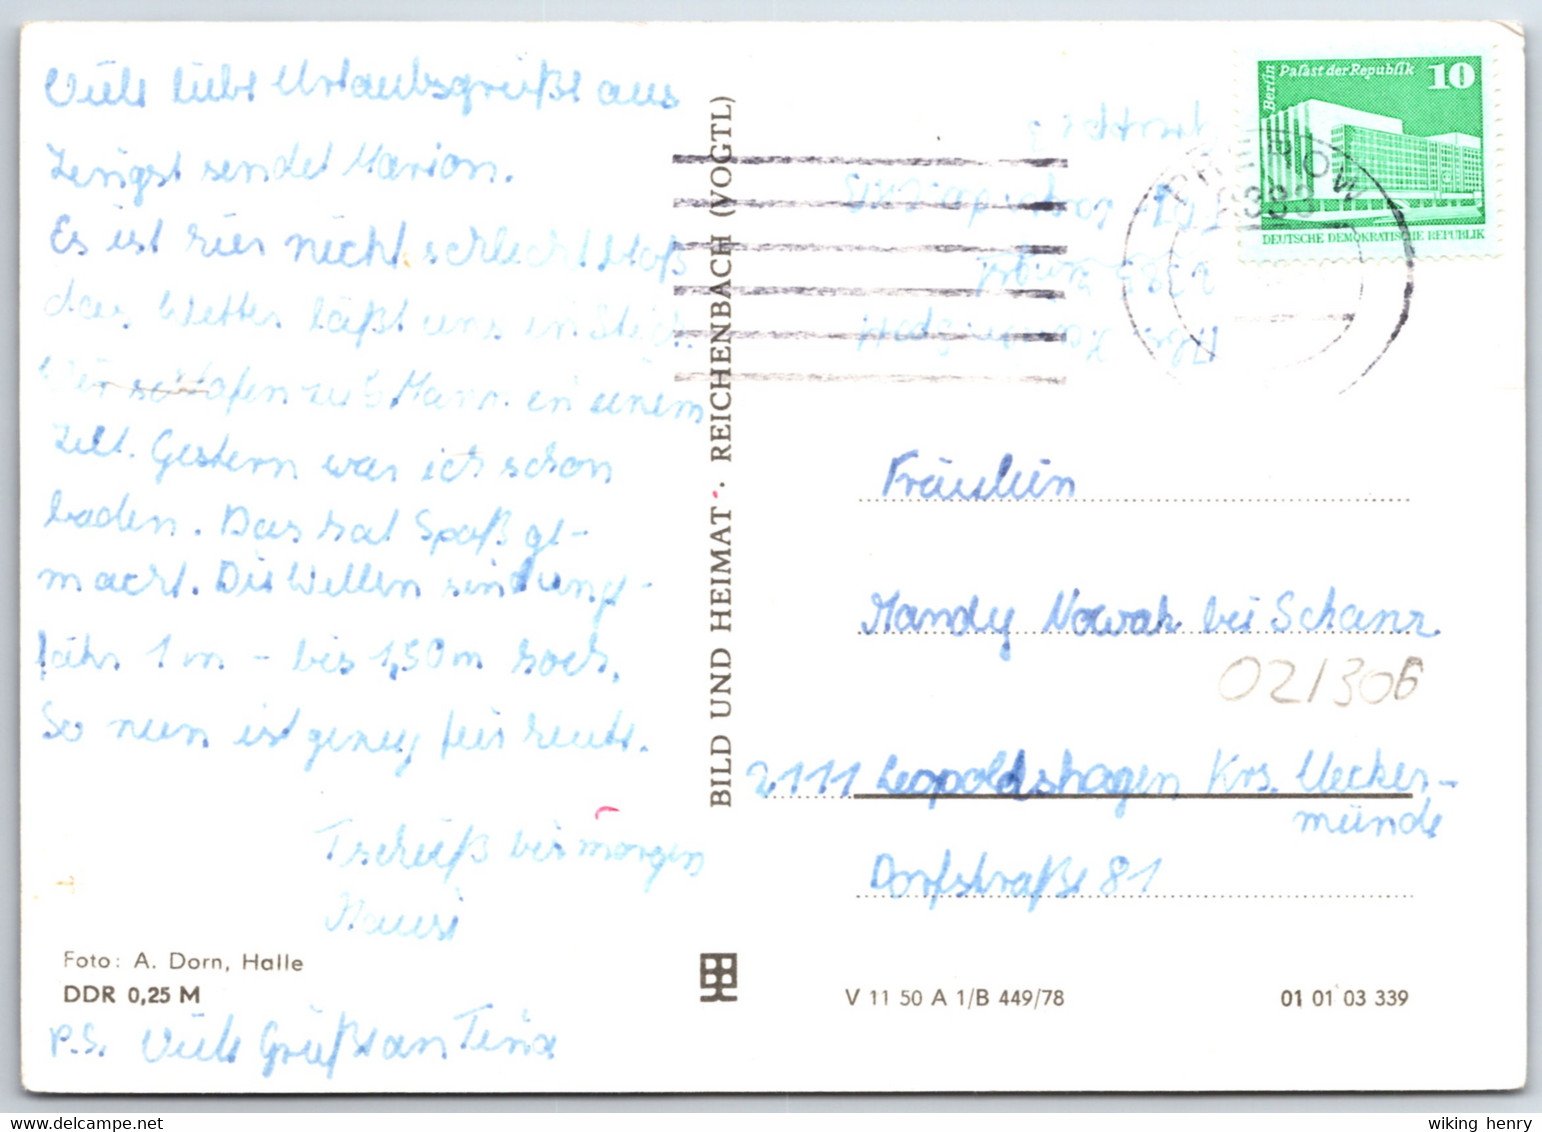 Viele liebe Urlaubsgrüße aus
Zingst sendet Marion.
Es ist hier nicht schlecht bloß
das Wetter läßt uns im Stich.
Wir schlafen zu 6 Mann in einem
Zelt. Gestern war ich schon
baden. Das hat Spaß ge-
macht. Die Wellen sind unge-
fähr 1 m - bis 1,50 m hoch.
So nun ist genug für heute.
Tschüß bis morgen
Foto: A. Dorn, Halle
DDR 0,25 M
P.S. Viele Grüße an Tina
BILD UND HEIMAT · REICHENBACH (VOGTL)
Berlin
Palast der Republik 10
DEUTSCHE DEMOKRATISCHE REPUBLIK
PREROW
2383
Fräulein
Mandy Nowak bei Schanz
02/306
2111 Leopoldshagen Krs. Uecker-
münde
Dorfstraße 81
V 11 50 A 1/B 449/78
01 01 03 339
wiking henry